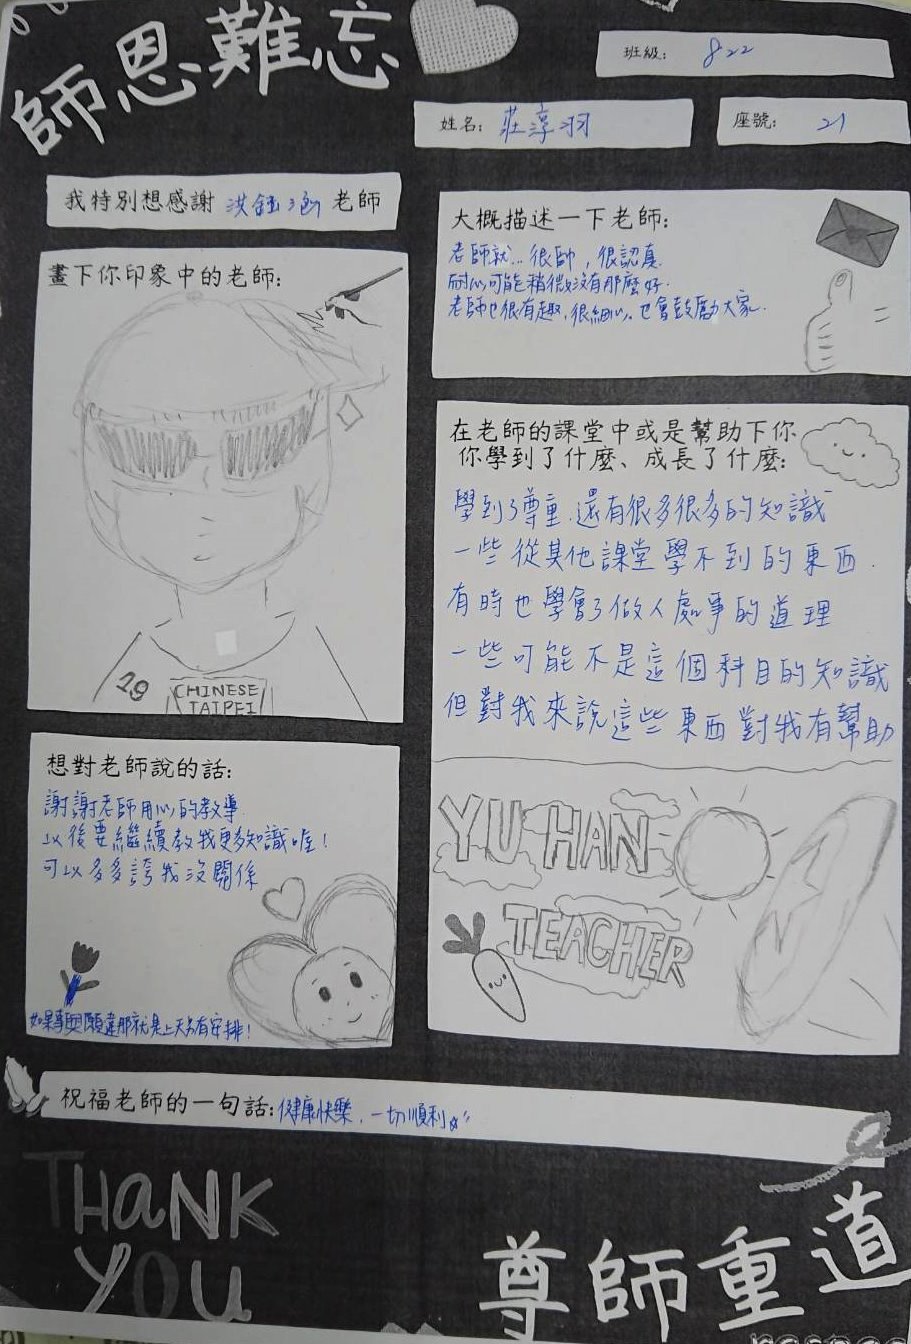 師恩難忘
班級: 822
姓名: 莊淳羽
座號: 21
我特別想感謝 洪鈺涵 老師
大概描述一下老師:
老師就... 很帥，很認真.
耐心可能稍微沒有那麼好.
老師也很有趣,很細心,也會鼓勵大家.
畫下你印象中的老師:
19
CHINESE
TAIPEI
在老師的課堂中或是幫助下你
你學到了什麼、成長了什麼:
學到了尊重.還有很多很多的知識
一些從其他課堂學不到的東西.
有時也學會了做人處事的道理
一些可能不是這個科目的知識
但對我來說這些東西對我有幫助
YU HAN
TEACHER
想對老師說的話:
謝謝老師用心的教導.
以後要繼續教我更多知識喔!
可以多多誇我沒關係
如果事與願違那就是上天另有安排!
祝福老師的一句話: 健康快樂，一切順利
THANK
YOU
尊師重道